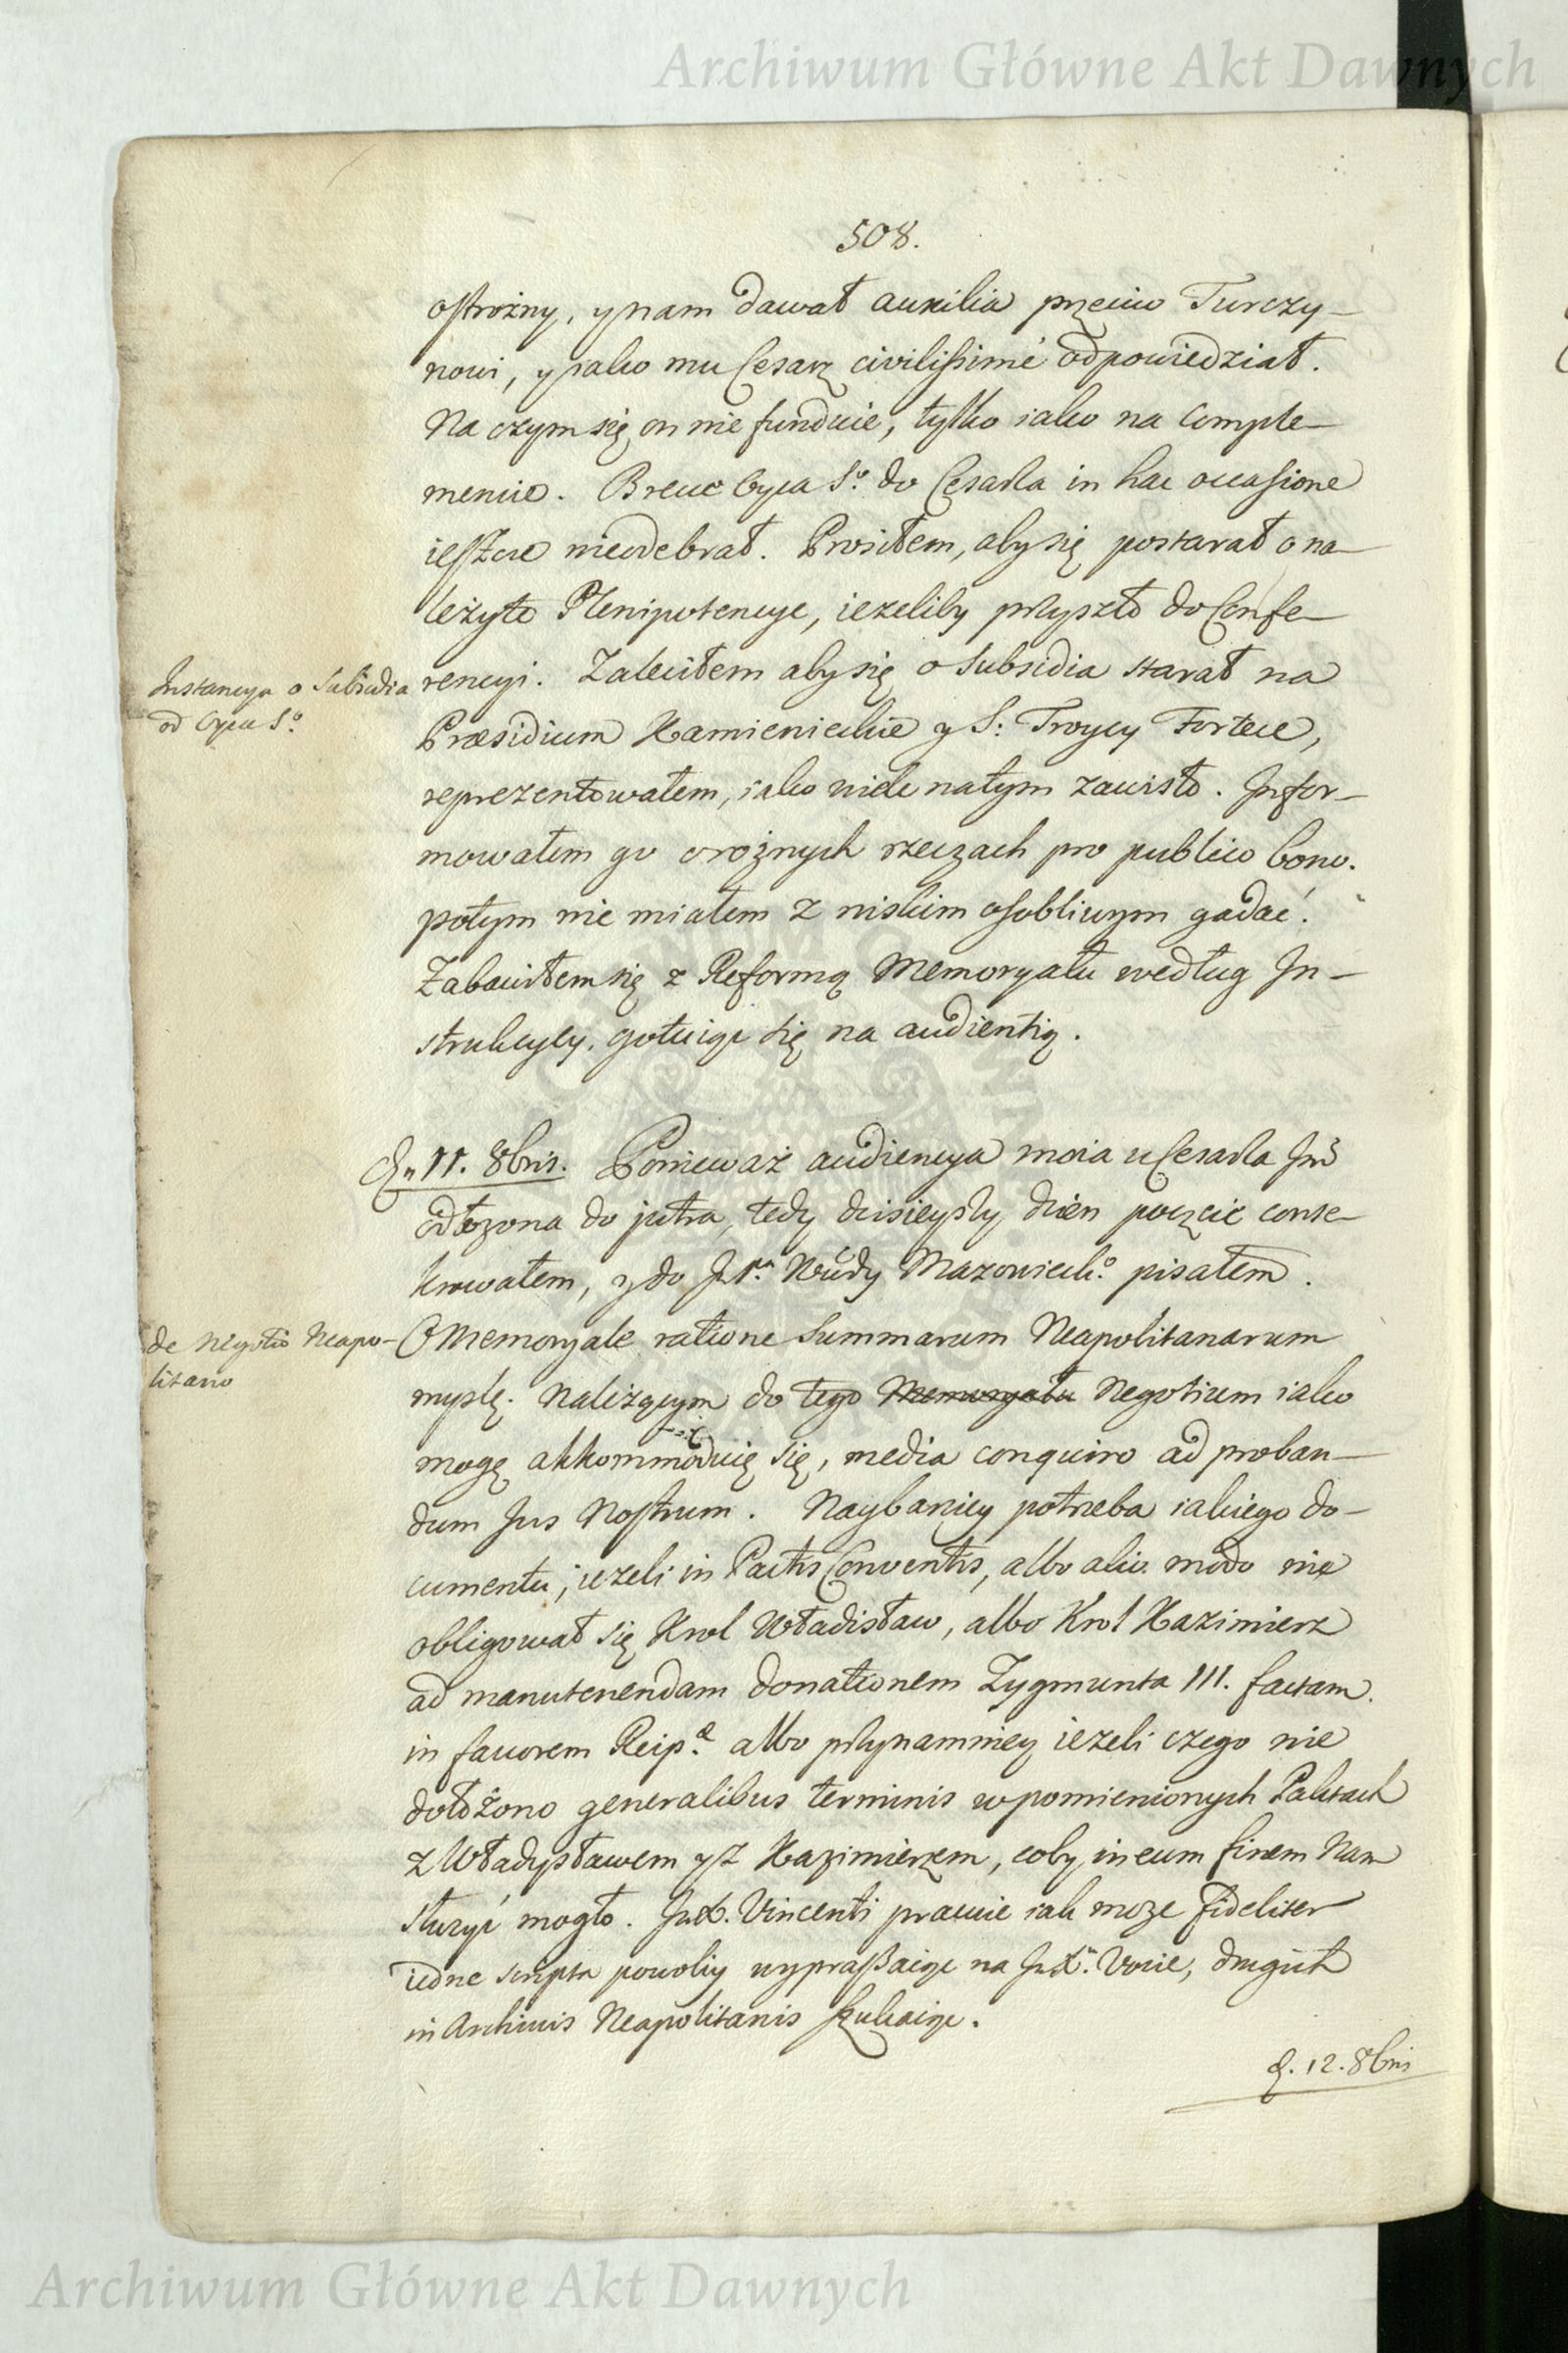 Archiwum Główne Akt Dawnych
508.
ostrożny, y nam dawał auxilia przeciw Turczy-
nowi, y iako mu Cesarz civilissimé odpowiedział.
Na czym się on nie funduie, tylko iako na comple-
mencie. Breue Oyca S.º do Cesarza in hac occasione
ieszcze nieodebrał. Prosiłem, aby się postarał o na-
leżyte Plenipotencye, ieżeliby przyszło do Confe-
Instancya o Subsidia
od Oyca S.º
rencyi. Zaleciłem aby się o Subsidia starał na
Præsidium Kamienieckie y S: Troycy Fortece,
reprezentowałem, iako wiele natym zawisło. Infor-
mowałem go o rożnych rzeczach pro publico bono.
potym nie miałem z niskim osobliwym gadać.
Zabawiłem się z Reformą Memoryału według In-
strukcyey, gotuiąc się na audientią.
11. 8bris. Ponieważ audiencya moia u Cesarza Jmći
odłożona do jutra, tedy dzisieyszy dzień poczcie conse-
krowałem, y do Wdy Mazowieck.º pisałem.
de Negotio Neapo-
litano
O Memoryale ratione Summarum Neapolitanarum
myslę. Należącym do tego Memoryału Negotium iako
mogę akkommoduię się, media conquiro ad proban-
dum Jus Nostrum. Naybarziey potrzeba iakiego do-
cumentu, ieżeli in Pactis Conventis, albo alio modo nie
obligował się Krol Władisław, albo Krol Kazimierz
ad manutenendam donationem Zygmunta III. factam
in fauorem Reip.æ albo przynamniey ieżeli czego nie
dołożono generalibus terminis wpomienionych Paktach
z Władysławem y z Kazimierzem, coby in eum finem Nam
służyć mogło. Vincenti prawie iak może fideliter
iedne scripta powoliy wypraszaiąc na drugich
in Archiuis Neapolitanis szukaiąc.
12. 8bris
Archiwum Główne Akt Dawnych